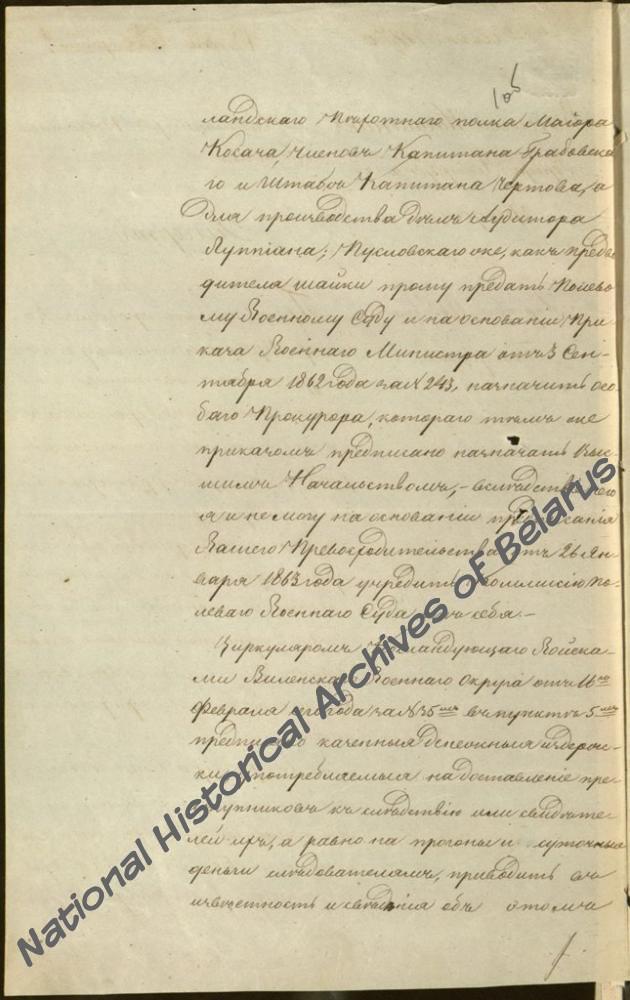 10об
ландскаго Пехотнаго полка Маіора
Косача, Членовъ Капитана Грабовска
го и Штабсъ Капитана Чертова, а
для производства дѣлъ Аудитора
Луппіана; Пусловскаго же, какъ предво
дителя шайки прошу предать Полево
му Военному Суду и на основаніи При
каза Военнаго Министра отъ 3 Сен-
тября 1862 года за № 243, назначить осо
баго Прокурора, котораго тѣмъ же
приказомъ предписано назначать Выс
шимъ Начальствомъ, – вслѣдствіе чего
я и не могу на основаніи предписанія
Вашего Превосходительства отъ 26 Ян
варя 1863 года учредить Коммисію По-
леваго Военнаго Суда отъ себя. –
Циркуляромъ Командующаго Войска-
ми Виленскаго Военнаго Округа отъ 16го
Февраля года за № 35мъ въ пунктѣ 5мъ
предписано казенныя денежныя издерж-
ки употребляемыя на доставленіе пре-
ступниковъ къ слѣдствію или свидѣте-
лей ихъ, а равно на прогоны и суточныя
деньги слѣдователямъ, приводить въ
извѣстность и свѣденія объ этомъ
National Historical Archives of Belarus